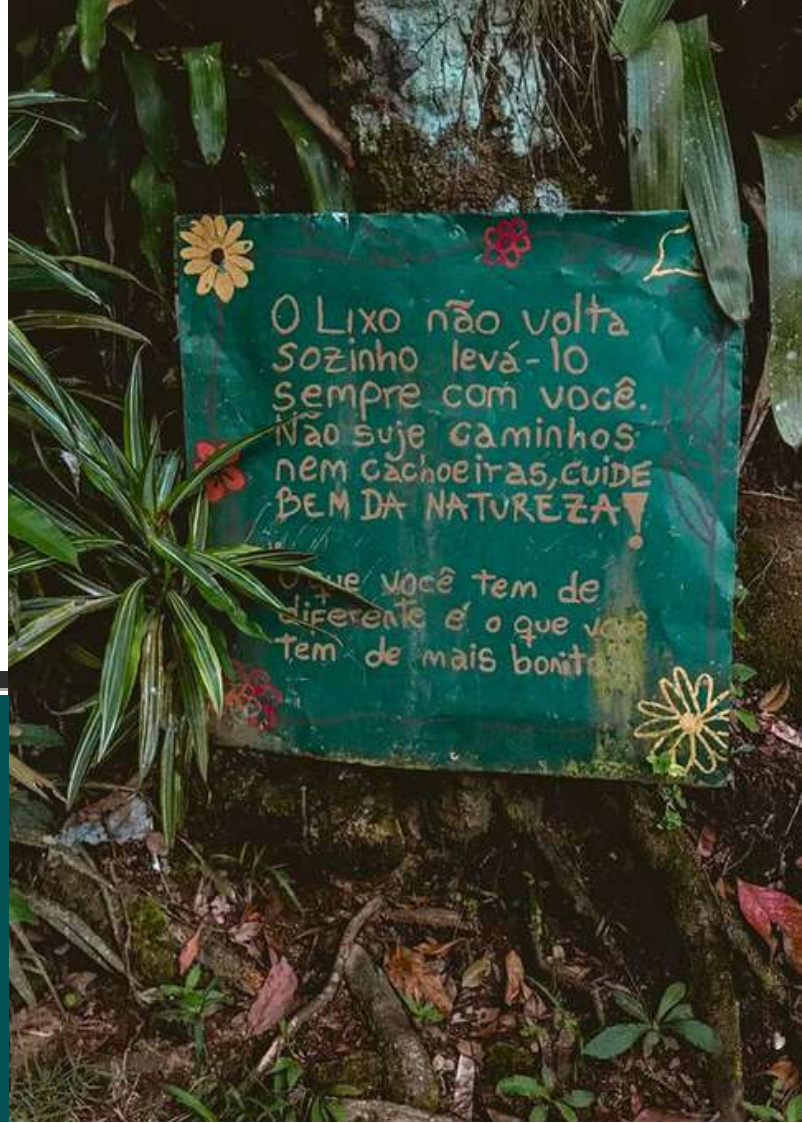 O Lixo não volta
sozinho levá-lo
sempre com você.
Não suje caminhos
nem cachoeiras, CUIDE
BEM DA NATUREZA!
"O que você tem de
diferente é o que você
tem de mais bonito"